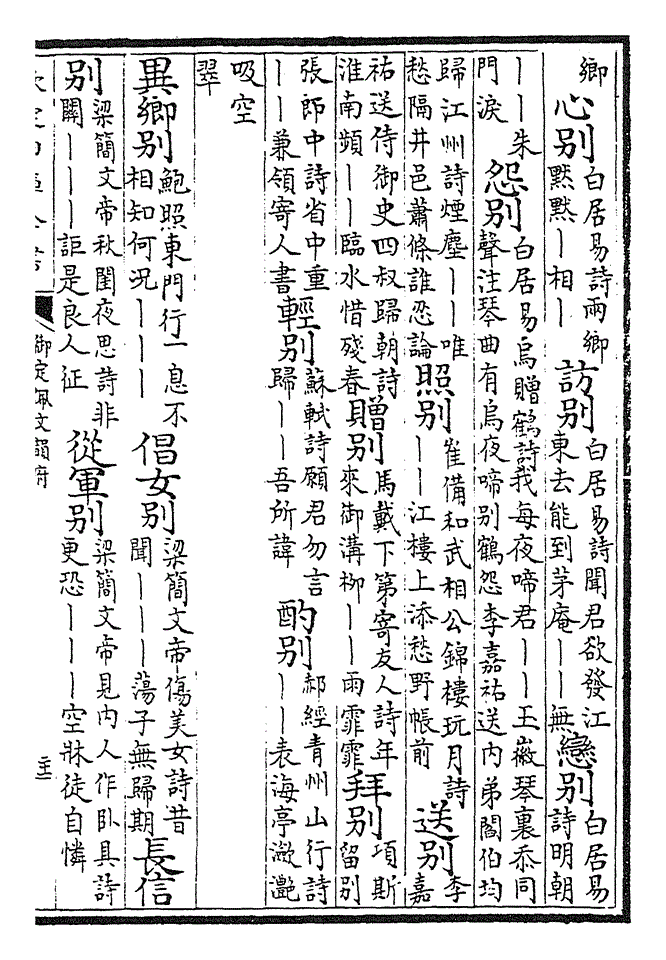 鄉
心别 白居易詩兩鄉
默默丨相丨
訪别 白居易詩聞君欲發江
東去能到茅庵丨丨無
戀别 白居易
詩明朝
丨丨朱
門淚
怨别 白居易烏贈鶴詩我每夜啼君丨丨玉徽琴裏忝同
聲注琴曲有烏夜啼别鶴怨李嘉祐送内弟閻伯均
歸江州詩煙塵丨丨唯
愁隔井邑蕭條誰忍論
照别 崔備和武相公錦樓玩月詩
丨丨江樓上添愁野帳前
送别 李
嘉
祐送侍御史四叔歸朝詩
淮南頻丨丨臨水惜殘春
贈别 馬戴下第寄友人詩年
來御溝柳丨丨雨霏霏
拜别 項斯
留别
張郎中詩省中重
丨丨兼領寄人書
輕别 蘇軾詩願君勿言
歸丨丨吾所諱
酌别 郝經青州山行詩
丨丨表海亭瀲灧
吸空
翠
異鄉别 鮑照東門行一息不
相知何況丨丨丨
倡女别 梁簡文帝傷美女詩昔
聞丨丨丨蕩子無歸期
長信
别 梁簡文帝秋閨夜思詩非
關丨丨丨詎是良人征
從軍别 梁簡文帝見内人作卧具詩
更恐丨丨丨空牀徒自憐
御定佩文韻府